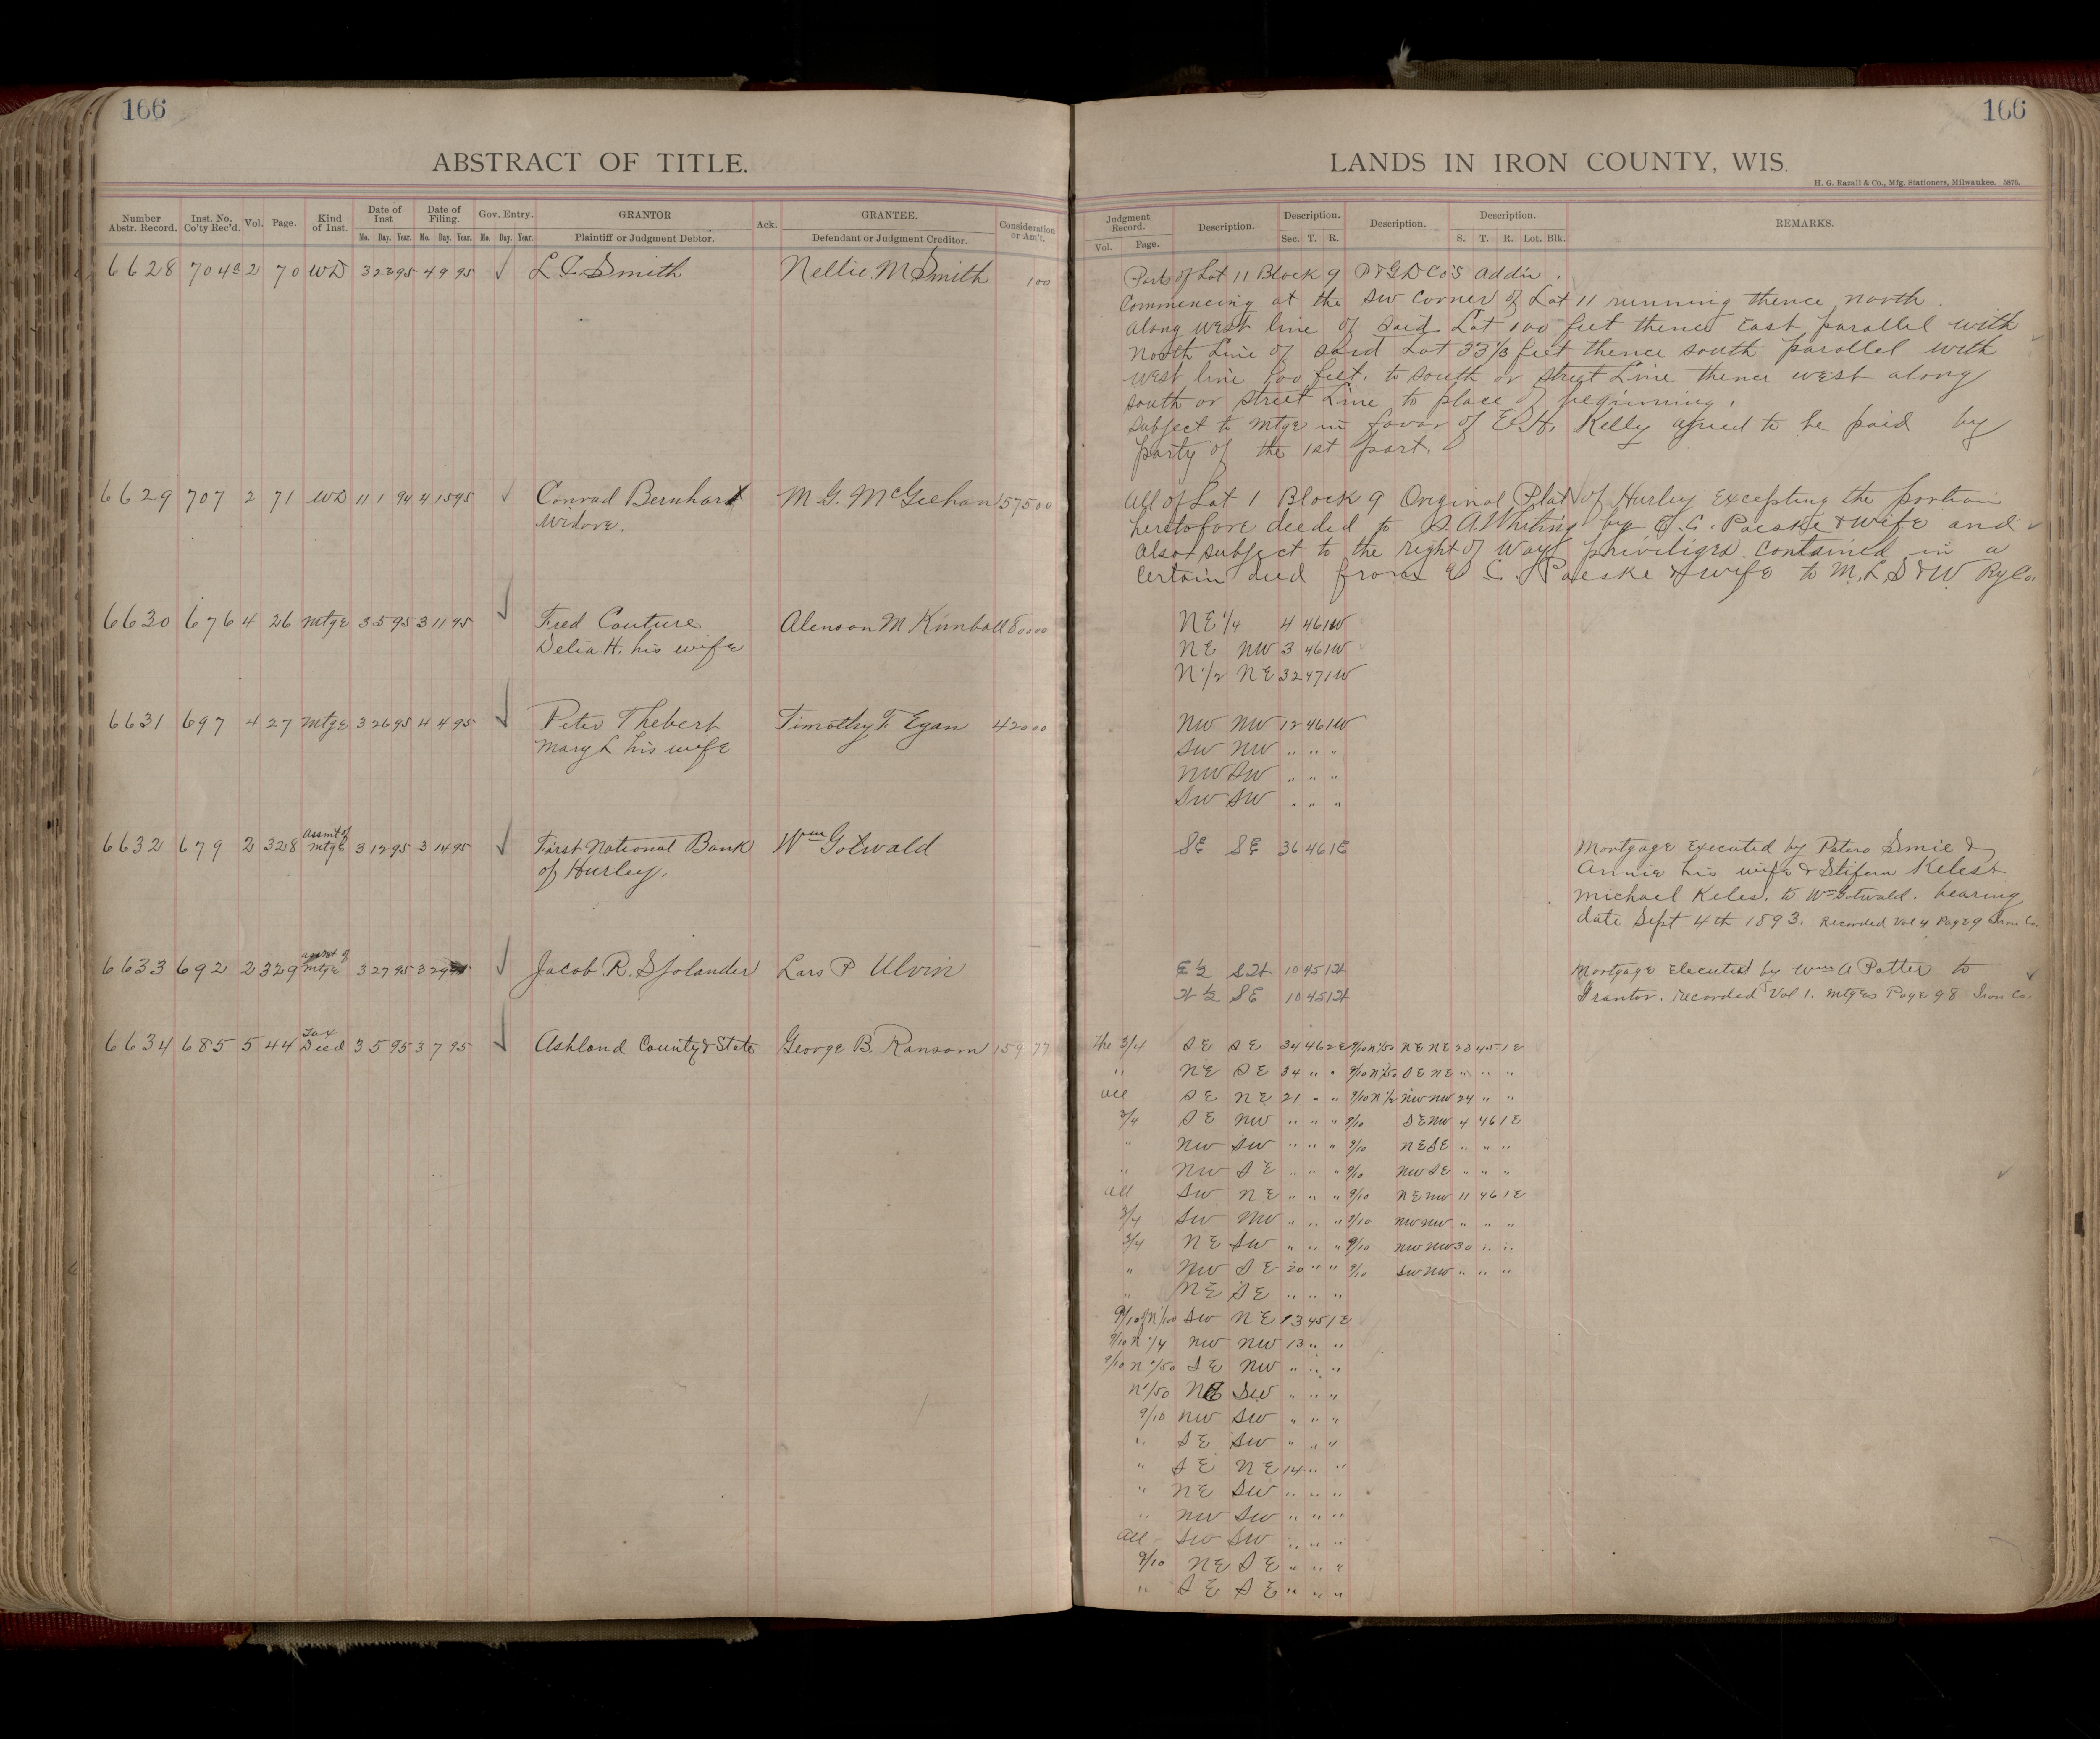 166
166
ABSTRACT OF TITLE.
LANDS IN IRON COUNTY, WIS.
H. G. Razall & Co., Mfg. Stationers, Milwaukee. 5876.
Number Abstr. Record. Inst. No. Co'ty Rec'd. Vol. Page. Kind of Inst. Date of Inst Mo. Day. Year. Date of Filing. Mo. Day. Year. Gov. Entry. Mo. Day. Year. GRANTOR Plaintiff or Judgment Debtor. Ack. GRANTEE. Defendant or Judgment Creditor. Consideration or Am't.
Judgment Record. Vol. Page. Description. Description. Sec. T. R. Description. Description. S. T. R. Lot. Blk. REMARKS.
6628 704a 2 70 WD 3 23 95 4 9 95 L C Smith Nellie M Smith 100
Part of Lot 11 Block 9 P&GDCo's Addn.
Commencing at the SW Corner of Lot 11 running thence north
along west line of said Lot 100 feet thence East parallel with
North Line of said Lot 33 1/3 feet thence south parallel with
west line 100 feet. to south or street Line thence west along
south or street Line to place of beginning.
subject to mtge in favor of E.H. Kelly agreed to be paid by
party of the 1st part.
6629 707 2 71 WD 11 1 94 4 15 95 Conrad Bernhart M G. McGeehan 575 00
Widore.
All of Lot 1 Block 9 Original Plat of Hurley Excepting the portion
heretofore deeded to S.A. Whiting by E. C. Paeske & wife and
also subject to the right of way priviliges contained in a
certain deed from E C. Paeske & wife to M.L.S&W RyCo.
6630 676 4 26 mtge 3 5 95 3 11 95 Fred Couture Alenson M Kimball 80000
Delia H. his wife
NE 1/4 4 46 1W
NE NW 3 46 1W
N 1/2 NE 32 47 1W
6631 697 4 27 mtge 3 26 95 4 4 95 Peter Thebert Timothy F Egan 420 00
Mary L his wife
NW NW 12 46 1W
SW NW " " "
NW SW " " "
SW SW " " "
6632 679 2 328 Assmt of mtge 3 12 95 3 14 95 First National Bank Wm Gotwald
of Hurley.
SE SE 36 46 1E
Mortgage Executed by Peters Smie &
Annie his wife & Stifem Kelest
Michael Keles. to Wm Gotwald. bearing
date Sept 4th 1893. Recorded Vol 4 Page 9 Iron Co.
6633 692 2 329 assmt of mtge 3 27 95 3 29 Jacob R. Sjolander Lars P Ulvin
E 1/2 SW 10 45 1W
W 1/2 SE 10 45 1W
Mortgage Executed by Wm A Potter to
Grantor. recorded Vol 1. Mtges Page 98 Iron Co.
6634 685 5 44 Tax Deed 3 5 95 3 7 95 Ashland County & State George B. Ransom 159 77
The 3/4 SE SE 34 46 2E 9/10 N 1/50 NE NE 23 45 1E
" NE SE 34 " " 9/10 N 1/50 SE NE " " "
all SE NE 21 " " 9/10 N 1/2 NW NW 24 " "
3/4 SE NW " " " 9/10 SE NW 4 46 1E
" NW SW " " " 9/10 NE SE " " "
" NW SE " " " 9/10 NW SE " " "
all SW NE " " " 9/10 NE NW 11 46 1E
3/4 SW NW " " " 9/10 NW NW " " "
3/4 NE SW " " " 9/10 NW NW 30 " "
" NW SE 20 " " 9/10 SW NW " " "
" NE SE " " "
9/10 of N 1/100 SW NE 13 45 1E
9/10 N 1/4 NW NW 13 " "
9/10 N 1/50 SE NW " " "
N 1/50 NE SW " " "
9/10 NW SW " " "
" SE SW " " "
" SE NE 14 " "
" NE SW " " "
" NW SW " " "
all SW SW " " "
9/10 NE SE " " "
" SE SE " " "